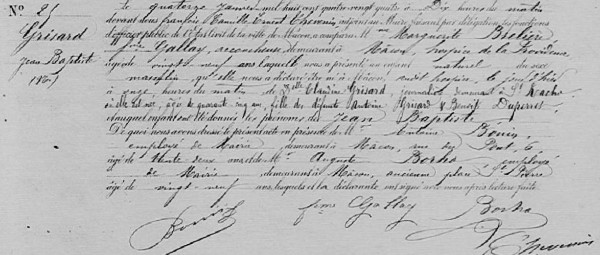 N° 21
Grisard
Jean Baptiste
Le quatorze Janvier mil huit cent quatre vingt quatre à Dix heures du matin
devant nous François Camille Ernest Chevenin adjoint au Maire faisant par délégation les fonctions
d'officier public de l'état civil de la ville de Mâcon, a comparu Me Marguerite Bretière
fme Gallay, accoucheuse demeurant à Mâcon, hospice de la Providence
âgée de vingt neuf ans laquelle nous a présenté un enfant naturel du sexe
masculin qu'elle nous a déclaré être né à Mâcon, audit hospice, le jour d'hier
à onze heures du matin de Delle Claudine Grisard, journalière demeurant à
où elle est née, âgée de quarante cinq ans, fille des défunts Antoine Grisard & Benoîte Duperret
auquel enfant ont été donnés les prénoms de Jean Baptiste
De quoi nous avons dressé le présent acte en présence de Mr Antoine Bouin
employé de Mairie demeurant à Mâcon, rue du Pont,
âgé de trente deux ans et de Mr Auguste Borho employé
de Mairie demeurant à Mâcon, ancienne place St Pierre
âgé de vingt-neuf ans, lesquels et la déclarante ont signé avec nous après lecture faite
fme Gallay Borho
Bouin
Chevenin